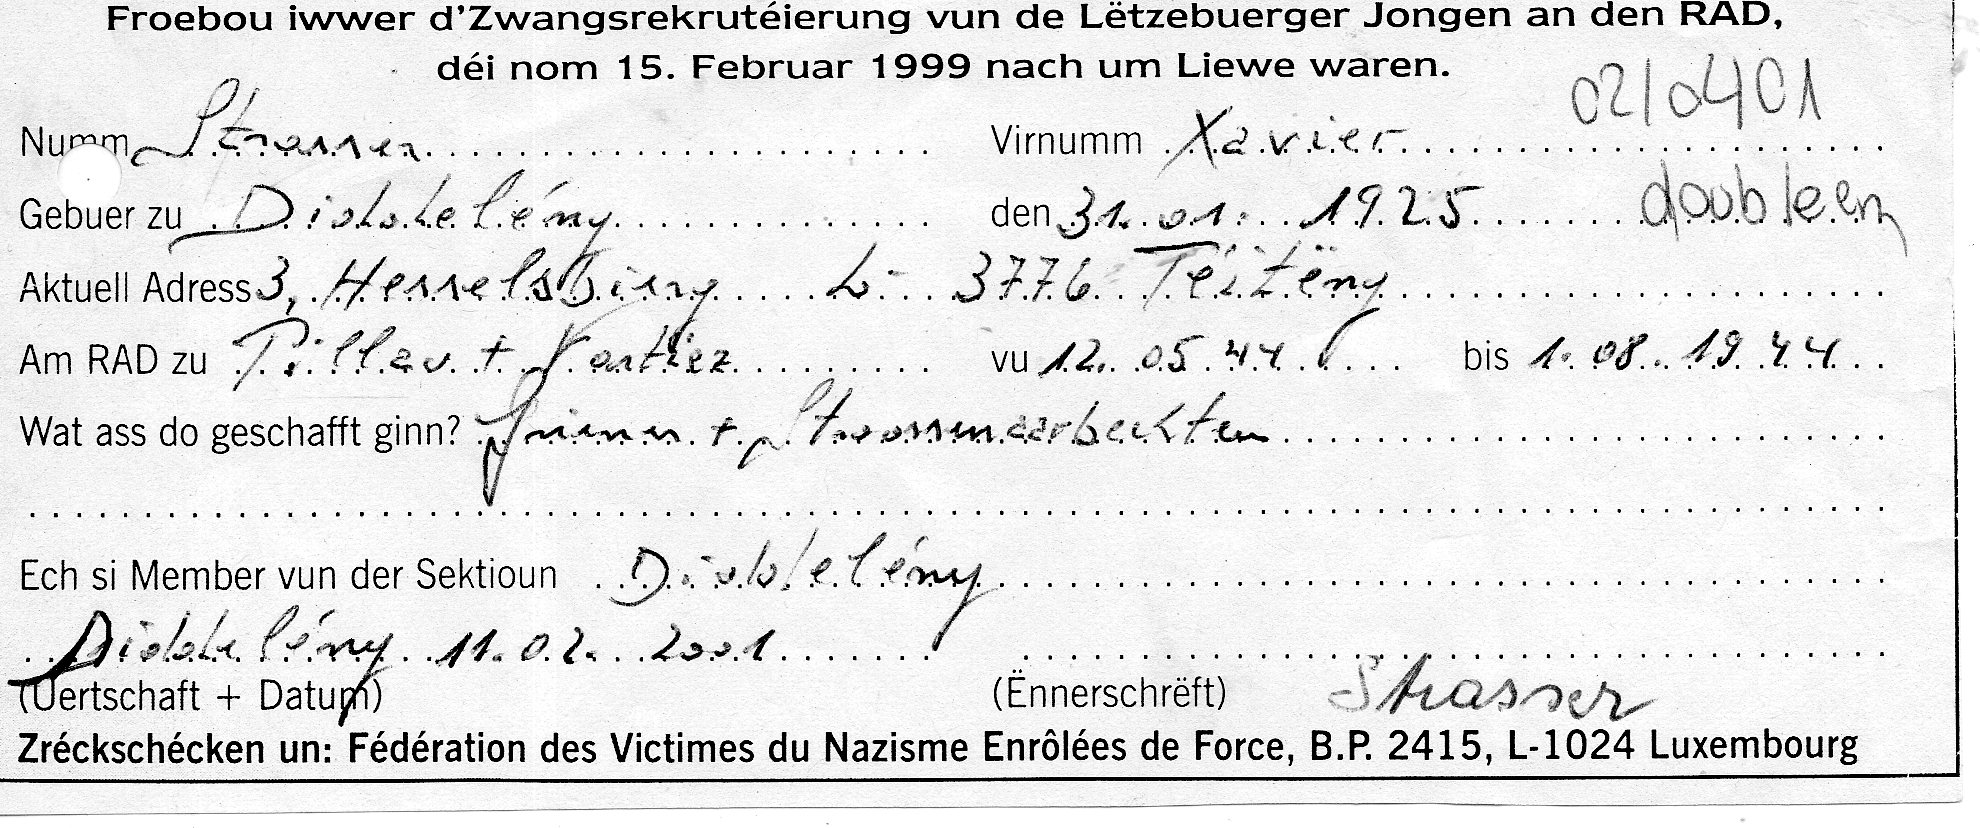 Froebou iwwer d'Zwangsrekrutéierung vun de Lëtzebuerger Jongen an den RAD,
déi nom 15. Februar 1999 nach um Liewe waren.
02/0401
Numm Strasser Virnumm Xavier
Gebuer zu Diddeléng den 31.01. 1925 doubleen
Aktuell Adress 3, Hesselsbierg L- 3776 Téiténg
Am RAD zu Pillau + vu 12.05.44 bis 1.08.1944
Wat ass do geschafft ginn? + Stroossenaarbechten
Ech si Member vun der Sektioun Diddeléng
Diddeléng 11.02.2001
(Uertschaft + Datum) (Ënnerschrëft) Strasser
Zréckschécken un: Fédération des Victimes du Nazisme Enrôlées de Force, B.P. 2415, L-1024 Luxembourg